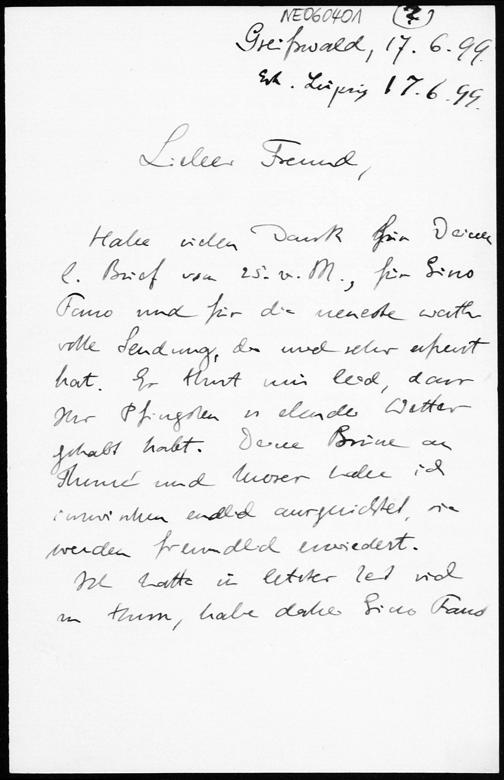 NE060401 (2)
Greifswald, 17.6.99.
Erh. Leipzig 17.6.99.
Lieber Freund,
Habe vielen Dank für Deinen
l. Brief vom 25. v. M., für Gino
Fano und für die neueste werth-
volle Sendung, die mich sehr erfreut
hat. Er thut mir leid, dass
Ihr Pfingsten so elendes Wetter
gehabt habt. Deine Grüsse an
Thomé und Moser habe ich
inzwischen endlich ausgerichtet, sie
werden freundlich erwiedert.
Ich hatte in letzter Zeit viel
zu thun, habe daher Gino Fano